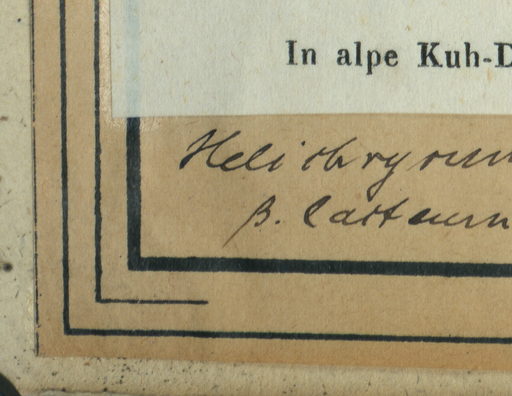 In alpe Kuh-D
Helichrysum
β. lacteum